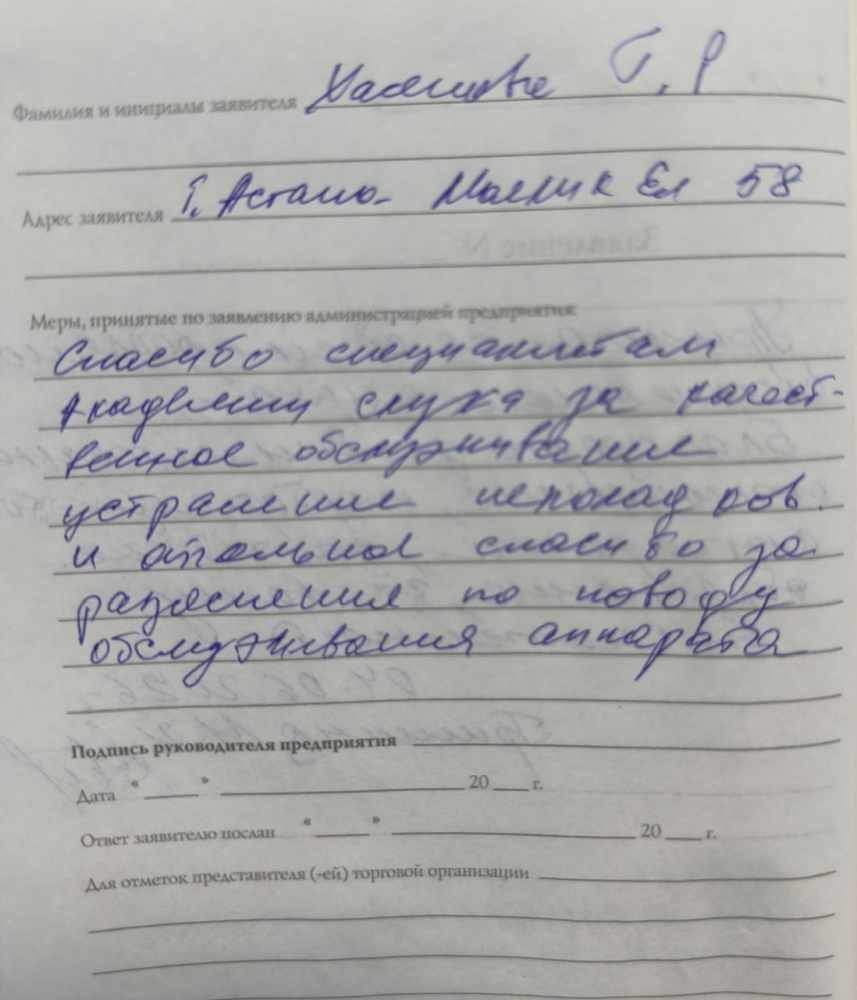 Фамилия и инициалы заявителя Хасенова Г. Р
Адрес заявителя г. Астана Мәңгілік Ел 58
Меры, принятые по заявлению администрацией предприятия:
Спасибо специалистам
Академии слуха за качест-
венное обслуживание
устранение неполадков.
и отдельное спасибо за
разяснения по поводу
обслуживания аппарата
Подпись руководителя предприятия
Дата « » 20 г.
Ответ заявителю послан « » 20 г.
Для отметок представителя (-ей) торговой организации